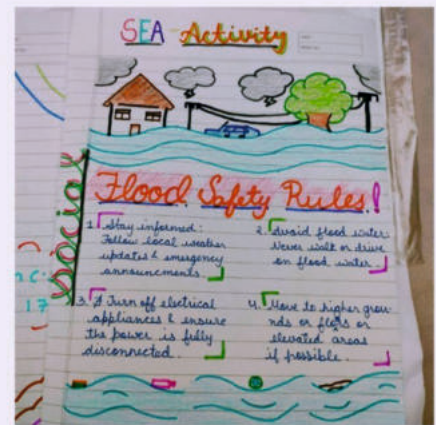 SEA Activity
Flood Safety Rules!
1. Stay informed:
Follow local weather
updates & emergency
announcements.
2. Avoid flood water
Never walk or drive
on flood water.
3. Turn off electrical
appliances & ensure
the power is fully
disconnected.
4. Move to higher grou-
nds or floors or
elevated areas
if possible.
social
17